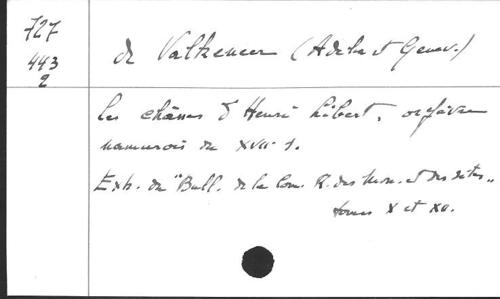 727
443
2
de Valkeneer (Adelbert Genev.)
Les châsses d'Henri Libert, orfèvre
namurois du XVII s.
Extr. du "Bull. de la Com. R. des Mon. et des sites"
tomes X et XV.